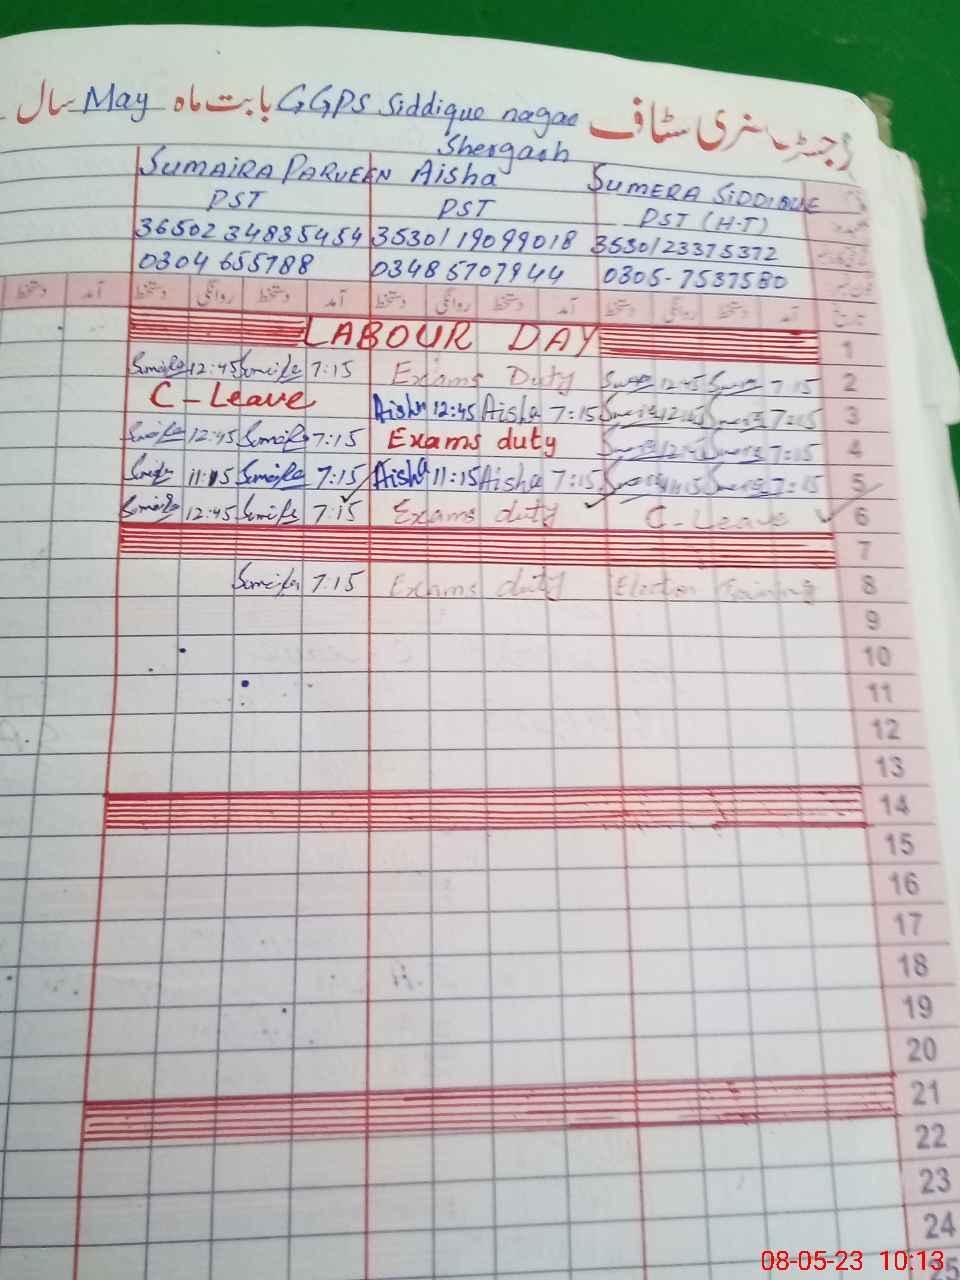 رجسٹر حاضری سٹاف GGPS Siddique nagar بابت ماہ May سال
Shergarh
SUMAIRA PARVEEN Aisha SUMERA SIDDIQUE
PST PST PST (H-T)
3650234835454 3530119099018 3530123375372
0304 655788 03485707944 0305-7537580
آمد دستخط روانگی دستخط آمد دستخط روانگی دستخط آمد دستخط روانگی دستخط آمد دستخط
LABOUR DAY 1
12:45 7:15 Exams Duty 12:45 7:15 2
C-Leave Aisha 12:45 Aisha 7:15 12:45 7:15 3
12:45 7:15 Exams duty 12:45 7:15 4
11:15 7:15 Aisha 11:15 Aisha 7:15 11:15 7:15 5
12:45 7:15 Exams duty C-Leave 6
7
7:15 Exams duty Election Training 8
9
10
11
12
13
14
15
16
17
18
19
20
21
22
23
24
08-05-23 10:13